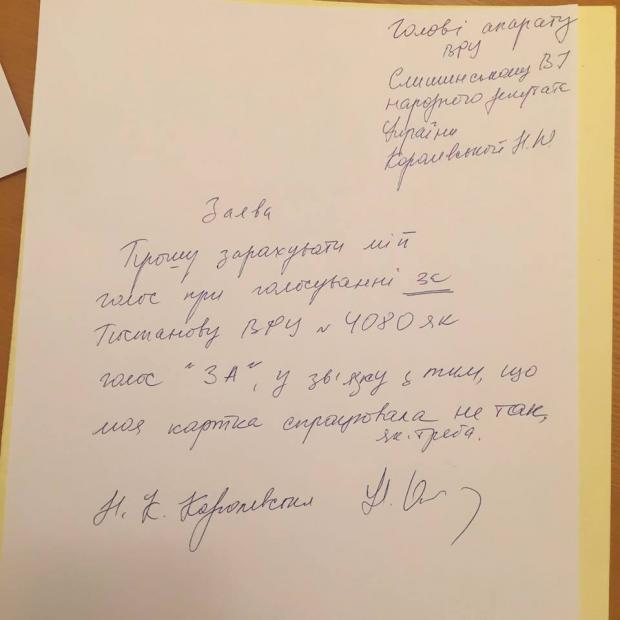 Голові апарату
ВРУ
Слишинському В.І
народного депутата
України
Королевської Н.Ю.
Заява
Прошу зарахувати мій
голос при голосуванні за
Постанову ВРУ № 4080 як
голос "ЗА", у зв'язку з тим, що
моя картка спрацювала не так,
як треба.
Н. Королевська